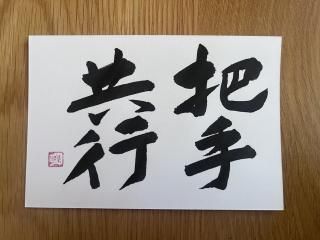 把手
共行